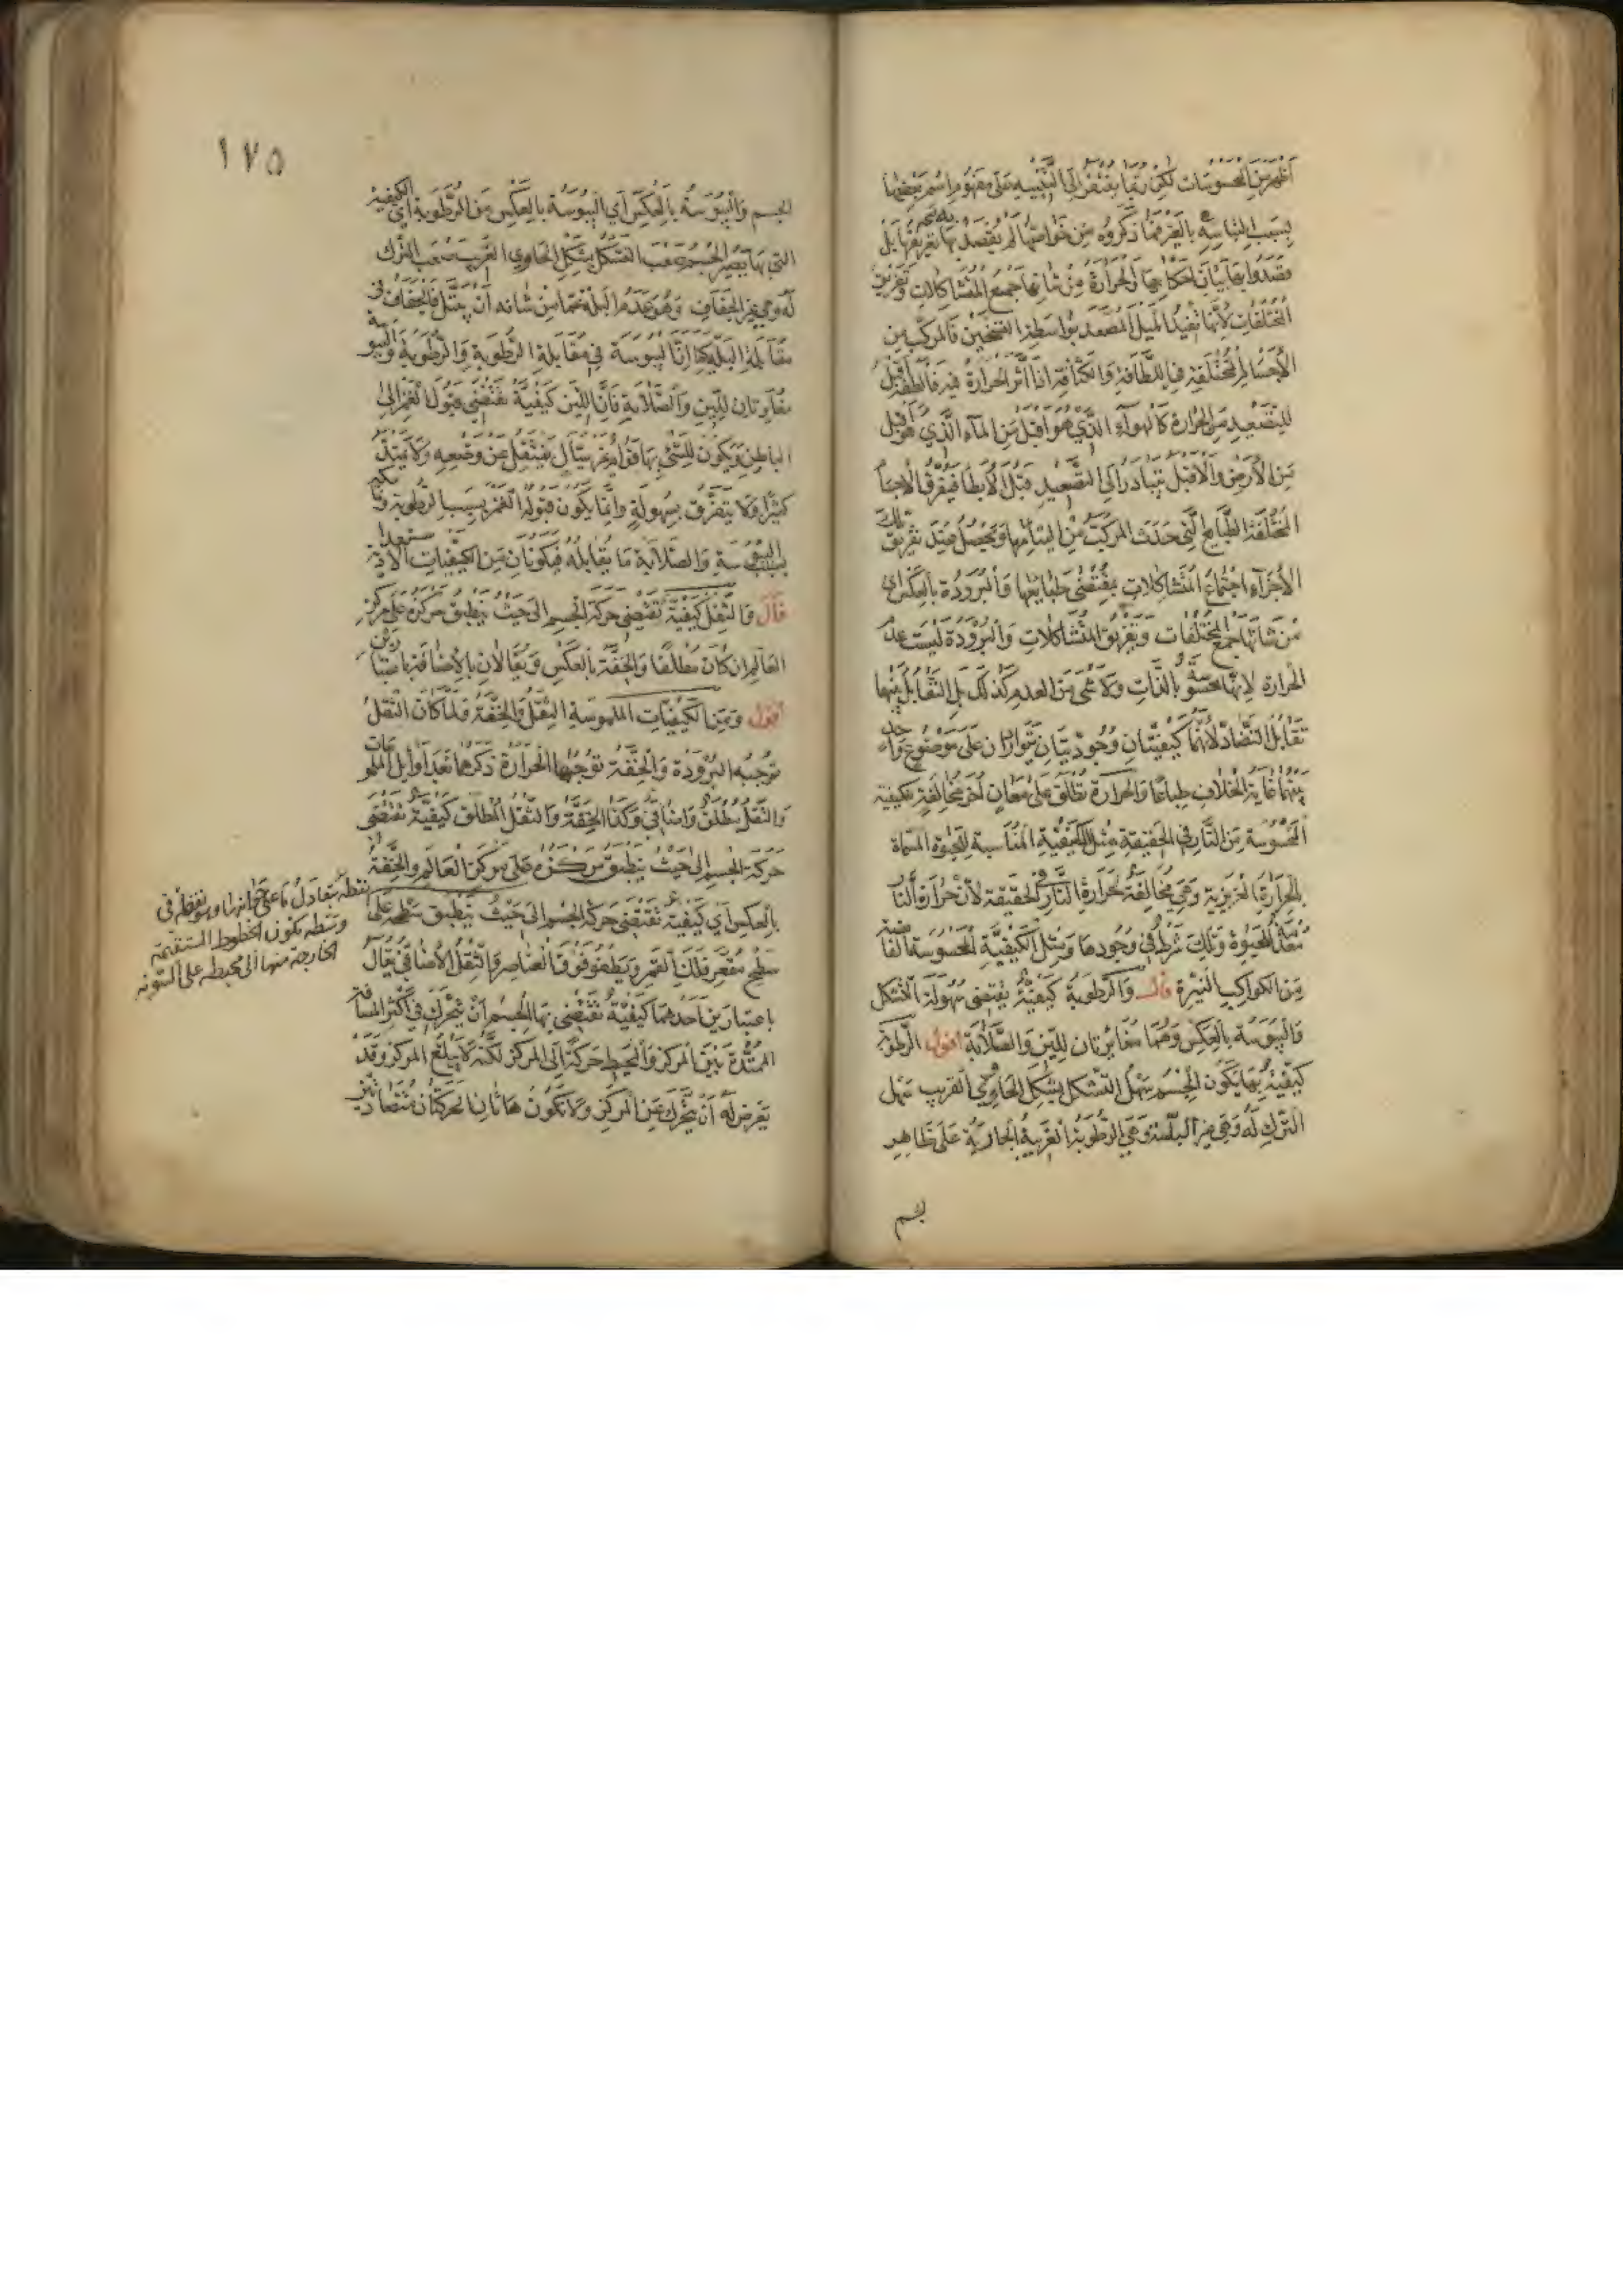 أظهر من المحسوسات لكن ربما يفتقر إلى التنبيه على مفهوم اسم بعضها
بسبب التباسه بالغير فما ذكروه من خواصها لم يقصد به تعريفها بل
قصدوا بها بيان أحكامها والحرارة من شأنها جمع المتشاكلات وتفريق
المختلفات لأنها تفيد الميل المصعد بواسطة التسخين فالمركب من
الأجسام المختلفة في اللطافة والكثافة إذا أثر الحرارة فيه فألطفه أقبل
للتصعيد من الحرارة كالهواء الذي هو أقبل من الماء الذي هو أقبل
من الأرض والأقبل يتبادر إلى التصعيد قبل الأبطأ فيفرق الأجسام
المختلفة الطبايع التي حدث المركب من التيامها ويحصل عند تفريق تلك
الأجزاء اجتماع المتشاكلات بمقتضى طبايعها والبرودة بالعكس أي
من شأنها جمع المختلفات وتفريق المتشاكلات والبرودة ليست عدم
الحرارة لأنها محسوسة بالذات ولا شيء من العدم كذلك بل التقابل بينهما
تقابل التضاد لأنهما كيفيتان وجوديتان تتواردان على موضوع واحد
بينهما غاية الخلاف طباعا والحرارة تطلق على معان أخر مخالفة للكيفية
المحسوسة من النار في الحقيقة مثل الكيفية المناسبة للحيوة المسماة
بالحرارة الغريزية وهي مخالفة لحرارة النار في الحقيقة لأن حرارة النار
معدمة للحيوة وتلك شرط في وجودها ومثل الكيفية المحسوسة الفائضة
من الكواكب النيرة قال والرطوبة كيفية يقتضي سهولة التشكل
واليبوسة بالعكس وهما مغايرتان للين والصلابة أقول الرطوبة
كيفية بها يكون الجسم سهل التشكل بشكل الحاوي القريب سهل
الترك له وهي غير البلة وهي الرطوبة الغريبة الجارية على ظاهر
١٧٥
الجسم واليبوسة بالعكس أي اليبوسة بالعكس من الرطوبة أي الكيفية
التي بها يصير الجسم صعب التشكل بشكل الحاوي القريب صعب الترك
له وهي غير الجفاف وهو عدم البلة عما من شأنه أن يبتل فالجفاف في
مقابلة البلة كما أن اليبوسة في مقابلة الرطوبة والرطوبة واليبوسة
مغايرتان للين والصلابة فإن اللين كيفية تقتضي قبول الغمز إلى
الباطن ويكون للشيء بها قوام غير سيال فينتقل عن وضعه ولا يمتد
كثيرا ولا يتفرق بسهولة وإنما يكون قبوله الغمز بسبب الرطوبة وتماسكه
بسبب اليبوسة والصلابة ما يقابله فيكونان من الكيفيات الاستعدادية
قال والثقل كيفية تقتضي حركة الجسم إلى حيث ينطبق مركزه على مركز
العالم إن كان مطلقا والخفة بالعكس ويقالان بالإضافة باعتبارين
أقول ومن الكيفيات الملموسة الثقل والخفة ولما كان الثقل
توجبه البرودة والخفة توجبها الحرارة ذكرهما بعد أوايل الملموسات
والثقل مطلق وإضافي وكذا الخفة والثقل المطلق كيفية تقتضي
حركة الجسم إلى حيث ينطبق مركزه على مركز العالم والخفة
بالعكس أي كيفية تقتضي حركة الجسم إلى حيث ينطبق سطحه على
سطح مقعر فلك القمر ويطفو فوق العناصر والثقل الإضافي يقال
باعتبارين أحدهما كيفية تقتضي بها الجسم أن يتحرك في أكثر المسافة
الممتدة بين المركز والمحيط حركة إلى المركز لكنه لا يبلغ المركز وقد
يعرض له أن يتحرك عن المركز ولا تكون هاتان الحركتان متضادتين
نقطة يتعادل ما على جوانبها وهو نقطة في
وسطه تكون الخطوط المستقيمة
الخارجة منها إلى محيطه على السوية